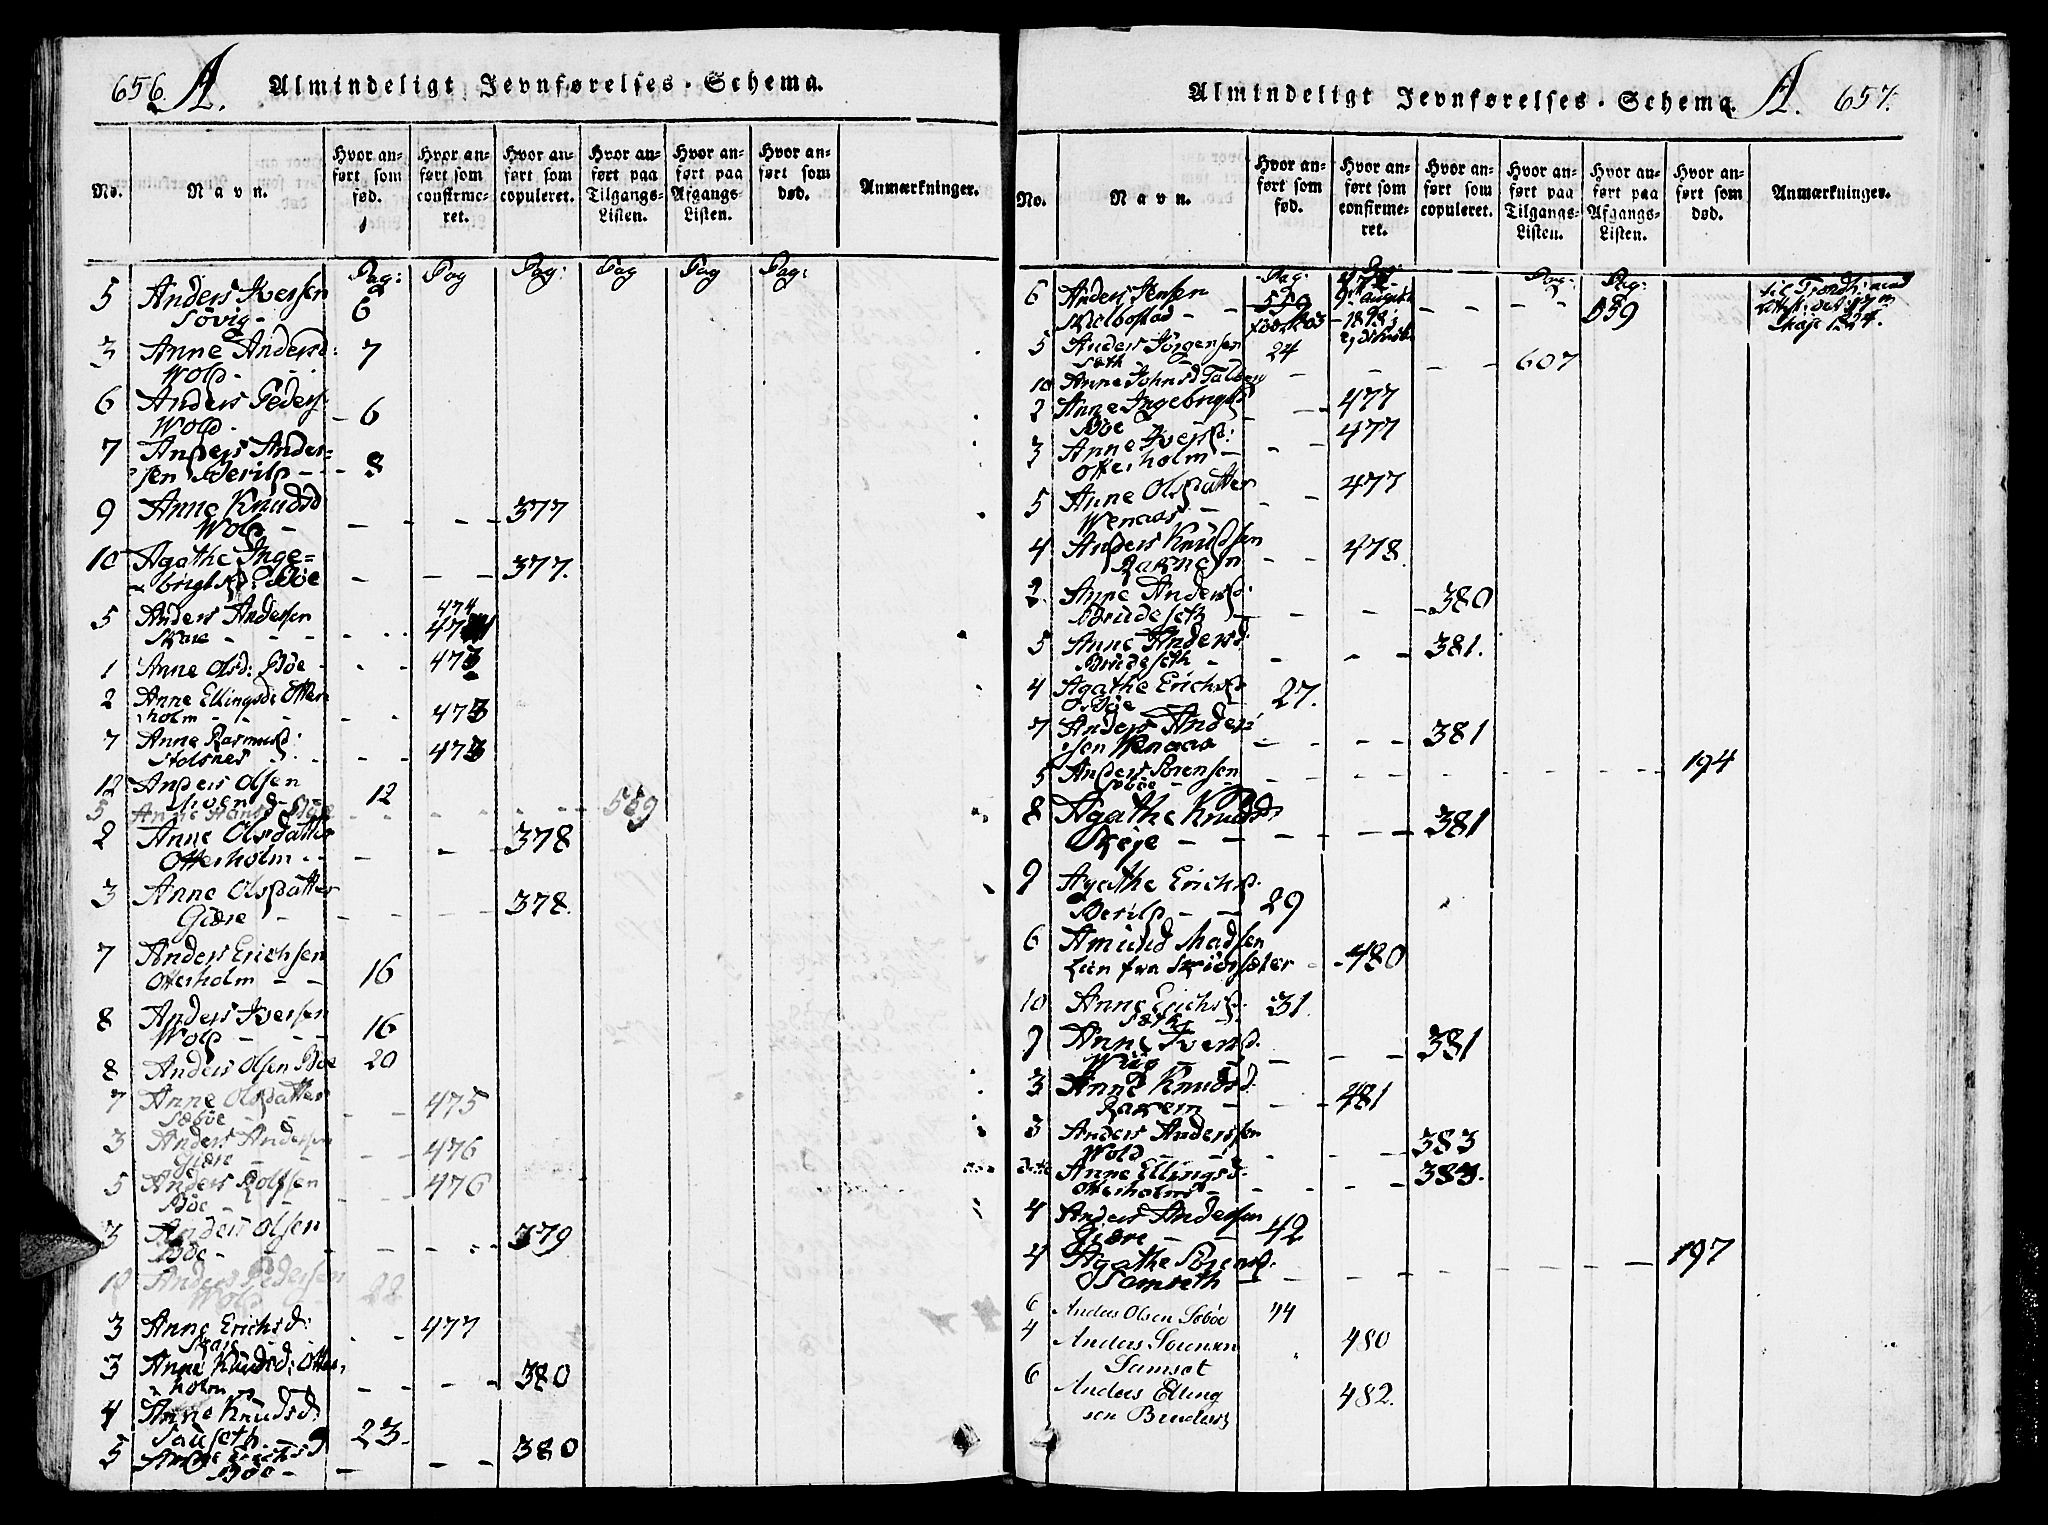 656. A. Almindeligt Jevnførelses-Schema.
No. Navn. Hvor anført som fød. Hvor anført som confirmeret. Hvor anført som copuleret. Hvor anført paa Tilgangs-Listen. Hvor anført paa Afgangs-Listen. Hvor anført som død. Anmærkninger.
Pag: Pag Pag: Pag Pag Pag:
5 Anders Iversen
Søvig - 6
3 Anne Andersd:
Wold - 7
6 Anders Peders:
Wold. - 6
7 Anders Ander-
sen Berild - - 8
9 Anne Knudsd
Wold - - - - 377
10 Agathe Inge-
brigtsd: Bøe - - - 377.
5 Anders Andersen 474
Skare - - - - -
1 Anne Olsd: Bøe - - - 473
2 Anne Ellingsd: Otter
holm - - - - - 473
7 Anne Rasmusd:
Stolsnes - - - 473
12 Anders Olsen
12
5 Anne Hansd Bøe - - - - 559
2 Anne Olsdatter
Otterholm - - - - 378
3 Anne Olsdatter
Giære - - - - 378.
7 Anders Erichsen
Otterholm - - 16
8 Anders Iversen
Wold - - - 16
8 Anders Olsen Bøe 20
7 Anne Olsdatter
Søbøe - - - - 475
3 Anders Andersen
Giære - - - - 476
5 Anders Rolfsen
Bøe - - - - 476
3 Anders Olsen
Bøe - - - - - 379
10 Anders Pedersen
Wold - 22
3 Anne Erichsd:
Skare - - 477
3 Anne Knudsd: Otter,
holm - - - - 380
4 Anne Knudsd:
23.
5 Anne Erichsd
Bøe - - - - 380
Almindeligt Jevnførelses-Schema. A. 657.
No. Navn. Hvor anført som fød. Hvor anført som confirmeret. Hvor anført som copuleret. Hvor anført paa Tilgangs-Listen. Hvor anført paa Afgangs-Listen. Hvor anført som død. Anmærkninger.
Pag: Pag: Pag:
6 Anders Jensen
Skielbostad - - 559 - - - - 559
5 Anders Jørgensen 24
Sæth - - - - - 607
10 Anne Johnsd
2 Anne Ingebrigtsd - - 477
Bøe
3 Anne Iversd: - - 477
Otterholm -
5 Anne Olsdatter - 477
Wenaas - -
4 Anders Knudsen - - 478.
2. Anne Andersd:
Brudeseth - - - - 380
5 Anne Andersd:
Brudeseth - - - - 381.
4 Agathe Erichsd
Bøe 27.
7 Anders Ander:
sen Wenaas - - - - 381
5 Anders Sørensen
Søbøe - - - - - - - - 194
8 Agathe Knudsd:
- - - - - 381
9 Agathe Erichsd.
Berild - - 29
6 Amund Madsen
- 480
10 Anne Erichsd: 31.
Sæth
9 Anne Iversd.
Wiig - - - - 381
3 Anne Knudsd:
- - - 481
3 Anders Andersen
Wold - - - - - 383
Anne Ellingsd:
Otterholm - - - - 383.
4 Anders Andersen
Giære - - 42
4 Agathe Sørensd.
Samseth - - - - - - 197
6 Anders Olsen Søbøe 44
4 Anders Sørensen 480
Samset
6 Anders Elling 482.
sen Brudes